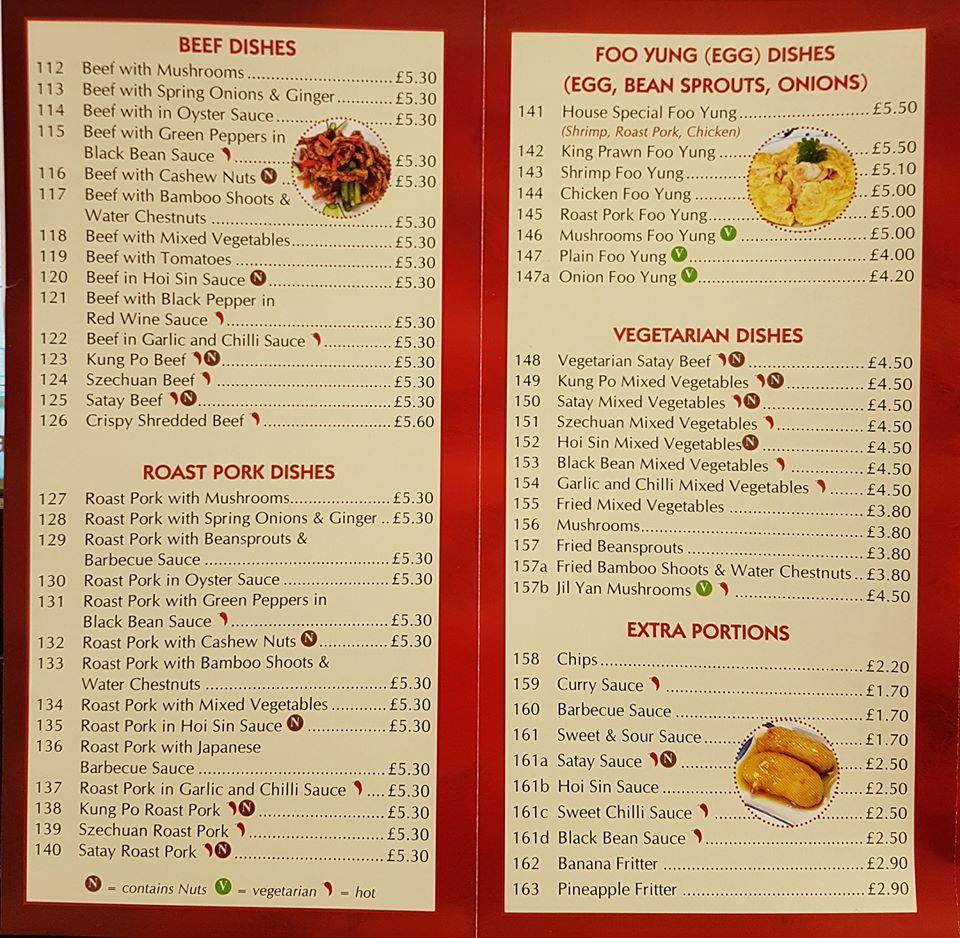 BEEF DISHES
112 Beef with Mushrooms £5.30
113 Beef with Spring Onions & Ginger £5.30
114 Beef with in Oyster Sauce £5.30
115 Beef with Green Peppers in
Black Bean Sauce £5.30
116 Beef with Cashew Nuts N £5.30
117 Beef with Bamboo Shoots &
Water Chestnuts £5.30
118 Beef with Mixed Vegetables £5.30
119 Beef with Tomatoes £5.30
120 Beef in Hoi Sin Sauce N £5.30
121 Beef with Black Pepper in
Red Wine Sauce £5.30
122 Beef in Garlic and Chilli Sauce £5.30
123 Kung Po Beef N £5.30
124 Szechuan Beef £5.30
125 Satay Beef N £5.30
126 Crispy Shredded Beef £5.60
ROAST PORK DISHES
127 Roast Pork with Mushrooms £5.30
128 Roast Pork with Spring Onions & Ginger £5.30
129 Roast Pork with Beansprouts &
Barbecue Sauce £5.30
130 Roast Pork in Oyster Sauce £5.30
131 Roast Pork with Green Peppers in
Black Bean Sauce £5.30
132 Roast Pork with Cashew Nuts N £5.30
133 Roast Pork with Bamboo Shoots &
Water Chestnuts £5.30
134 Roast Pork with Mixed Vegetables £5.30
135 Roast Pork in Hoi Sin Sauce N £5.30
136 Roast Pork with Japanese
Barbecue Sauce £5.30
137 Roast Pork in Garlic and Chilli Sauce £5.30
138 Kung Po Roast Pork N £5.30
139 Szechuan Roast Pork £5.30
140 Satay Roast Pork N £5.30
N = contains Nuts V = vegetarian = hot
FOO YUNG (EGG) DISHES
(EGG, BEAN SPROUTS, ONIONS)
141 House Special Foo Yung £5.50
(Shrimp, Roast Pork, Chicken)
142 King Prawn Foo Yung £5.50
143 Shrimp Foo Yung £5.10
144 Chicken Foo Yung £5.00
145 Roast Pork Foo Yung £5.00
146 Mushrooms Foo Yung V £5.00
147 Plain Foo Yung V £4.00
147a Onion Foo Yung V £4.20
VEGETARIAN DISHES
148 Vegetarian Satay Beef N £4.50
149 Kung Po Mixed Vegetables N £4.50
150 Satay Mixed Vegetables N £4.50
151 Szechuan Mixed Vegetables £4.50
152 Hoi Sin Mixed Vegetables N £4.50
153 Black Bean Mixed Vegetables £4.50
154 Garlic and Chilli Mixed Vegetables £4.50
155 Fried Mixed Vegetables £3.80
156 Mushrooms £3.80
157 Fried Beansprouts £3.80
157a Fried Bamboo Shoots & Water Chestnuts £3.80
157b Jil Yan Mushrooms V £4.50
EXTRA PORTIONS
158 Chips £2.20
159 Curry Sauce £1.70
160 Barbecue Sauce £1.70
161 Sweet & Sour Sauce £1.70
161a Satay Sauce N £2.50
161b Hoi Sin Sauce £2.50
161c Sweet Chilli Sauce £2.50
161d Black Bean Sauce £2.50
162 Banana Fritter £2.90
163 Pineapple Fritter £2.90